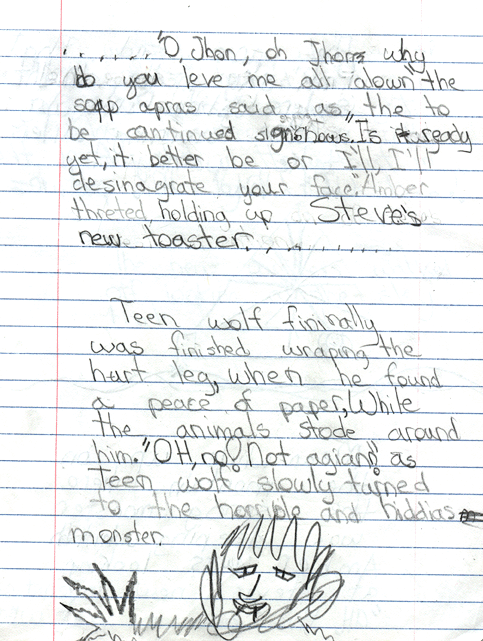 . . . . . . "O, Jhon, oh Jhon why
do you leve me all alown" the
sopp apras said as, the to
be continued sign shows. Is it ready
yet, it better be or I'll, I'll
desinagrate your face," Amber
threted, holding up Steve's
new toaster. . . . . . . . . .
Teen wolf finirally
was finished wraping the
hurt leg, when he found
a peace of paper, While
the animals stode around
him. "OH, no! Not agian!" as
Teen wolf slowly turned
to the horrible and hiddias
monster.